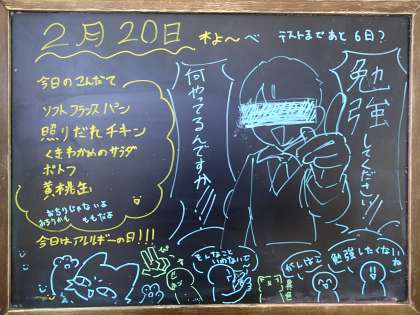 2月20日
テストまであと6日?
今日のこんだて
ソフトフランスパン
照りだれチキン
くきわかめのサラダ
ポトフ
黄桃缶
おちりじゃないよ
ももだよ
今日はアレルギーの日!!!
何やってるんですか!!
勉強してください!!
そんなこと
いわないで〜
がんばこ
勉強したくない